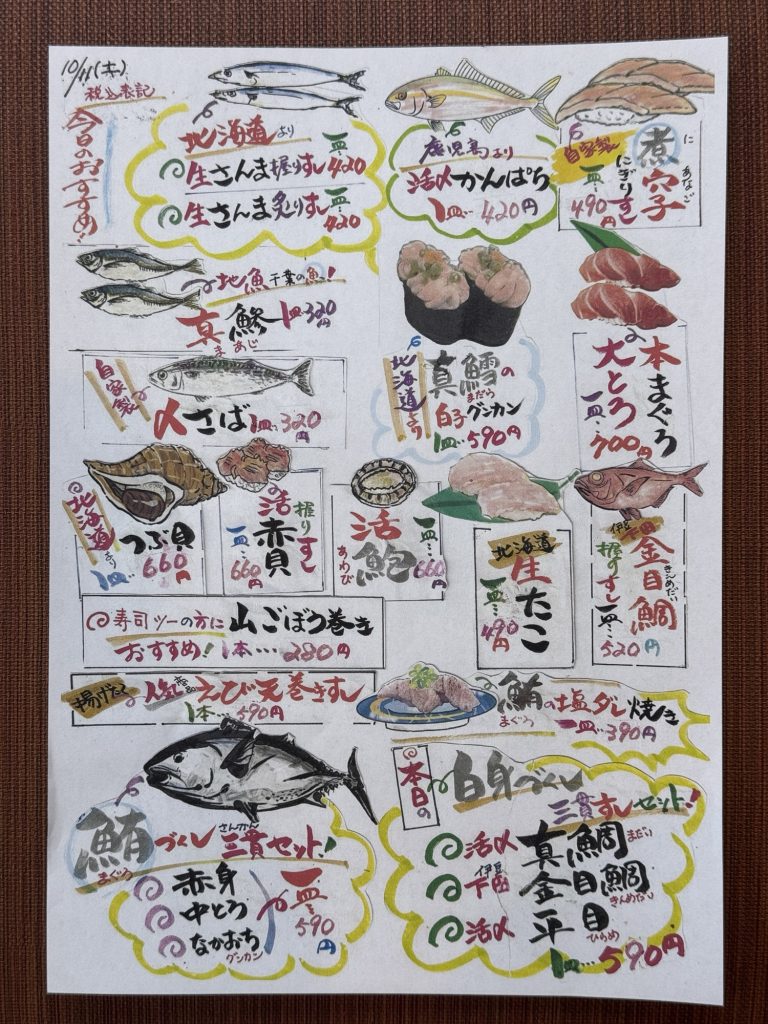 10/11(木)
税込表記
今日のおすすめ!!
北海道より
生さんま握りすし 一皿…420
生さんま炙りすし 一皿…420
鹿児島より
活〆かんぱち
1皿…420円
自家製
煮穴子
に あなご
にぎりすし
一皿…490円
地魚 千葉の魚!
真鯵 1皿…320円
まあじ
北海道より
真鱈の
まだら
白子グンカン
1皿…590円
本まぐろ
大とろ
一皿…700円
自家製
〆さば 1皿…320円
北海道より
つぶ貝
1皿…660円
活赤貝
握りすし
一皿…660円
活鮑
あわび
一皿…660円
北海道
生たこ
一皿…490円
伊豆下田
金目鯛
きんめだい
握りすし
一皿…520円
寿司ツーの方に 山ごぼう巻き
おすすめ! 1本…280円
揚げたて 人気 えび天巻きすし
1本…590円
鮪の塩ダレ焼き
まぐろ
一皿…390円
鮪づくし 三貫セット!
まぐろ さんかん
赤身
中とろ
なかおち
グンカン
一皿…590円
本日の
白身づくし
三貫すしセット!
活〆 真鯛 まだい
伊豆下田 金目鯛 きんめだい
活〆 平目 ひらめ
1皿…590円